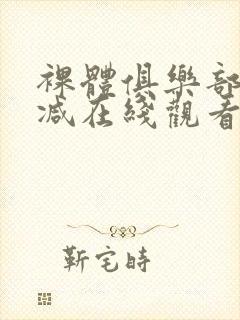 裸體俱樂部
减在綫觀看
靳宅時